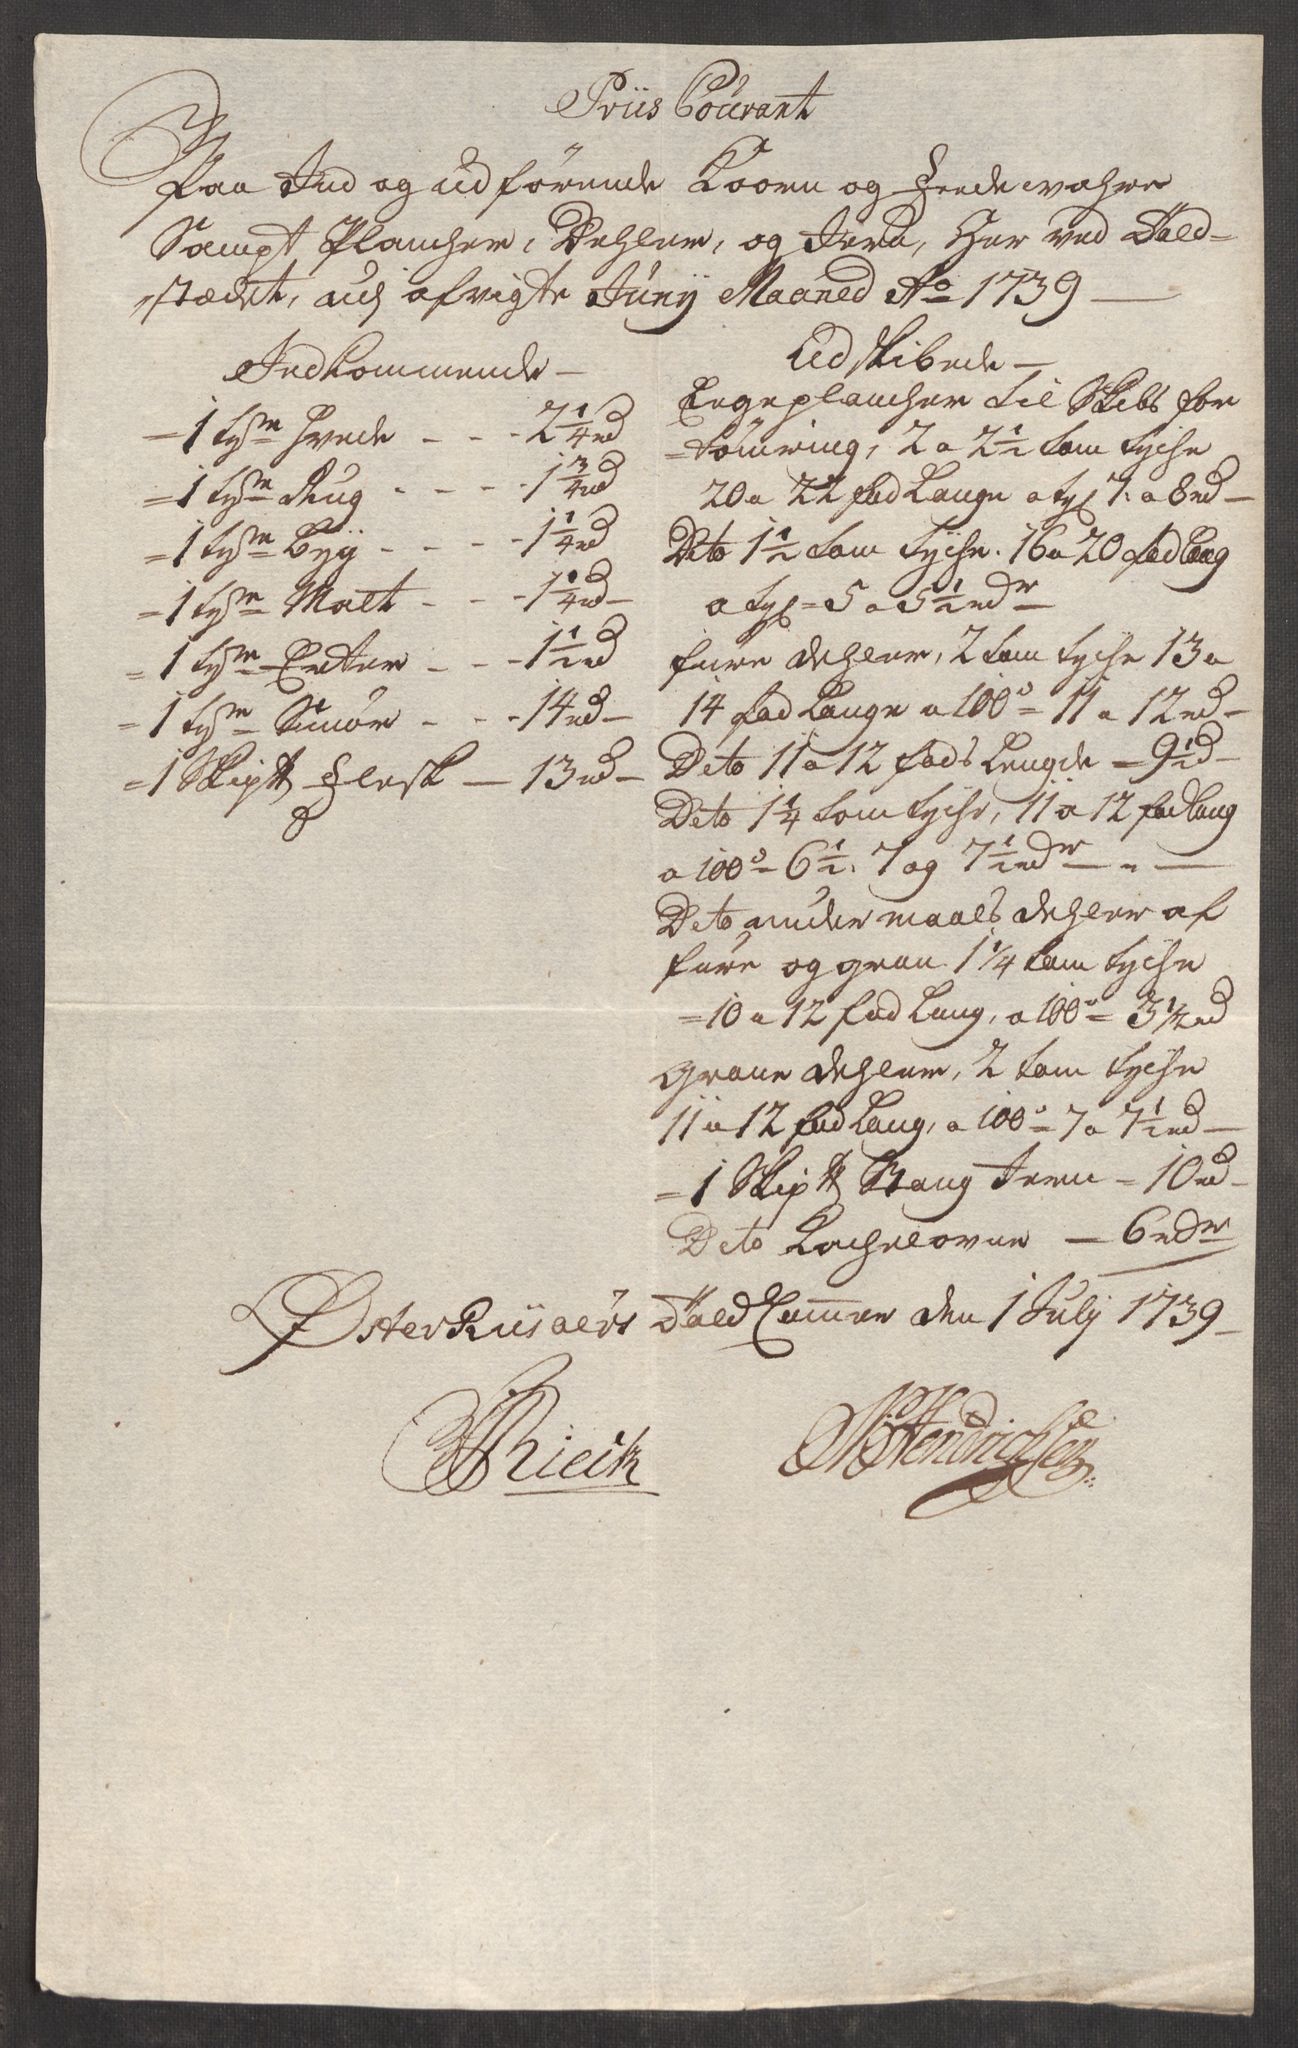 Priis Courant
Paa Ind og udförende Koorn og Feedevahre
Sampt Plancher, Dehler, og Jern, Her ved Told-
stædet, udj afvigte Junij Maaned Ao 1739
Indkommende -
= 1 tyne Hvede - - - 2 1/4 rd
= 1 tyne Rug - - - - 1 3/4 rd
= 1 tyne Byg - - - - 1 1/4 rd
= 1 tyne Malt - - - 1 1/4 rd -
= 1 tyne Erter - - - 1 1/2 rd
= 1 tyne Smör - - - 14 rd -
= 1 Skip℔ Flesk - 13 rd -
Udskibede -
Eegeplancher til Skibs for
=tömring, 2 a 2 1/2 tom tyche
20 a 22 fod Lange a ty 7. a 8 rd -
Dito 1 1/2 tom tyche. 16 a 20 fod lang
a ty = 5 a 5 1/2 rdr
furu dehler, 2 tom tyche 13 a
14 fod Lange a 100d = 11 a 12 rd -
Dito 11 a 12 fods Lengde - 9 1/2 rd -
Dito 1 1/4 tom tyche, 11 a 12 fod lang
a 100d = 6 1/2. 7 og 7 1/2 rdr - " -
Dito under maals dehler af
furu og gran 1 1/4 tom tyche
= 10 a 12 fod Lang, a 100d = 3 1/2 rd
grane dehler, 2 tom tyche
11 a 12 fod Lang, a 100d = 7 a 7 1/2 rd -
= 1 Skip℔ Stang Jern = 10 rd -
Dito Kachelovne - 6 rdr
Øster Riisöers Told Cammer den 1 July 1739
Rieck
Hendrichsen